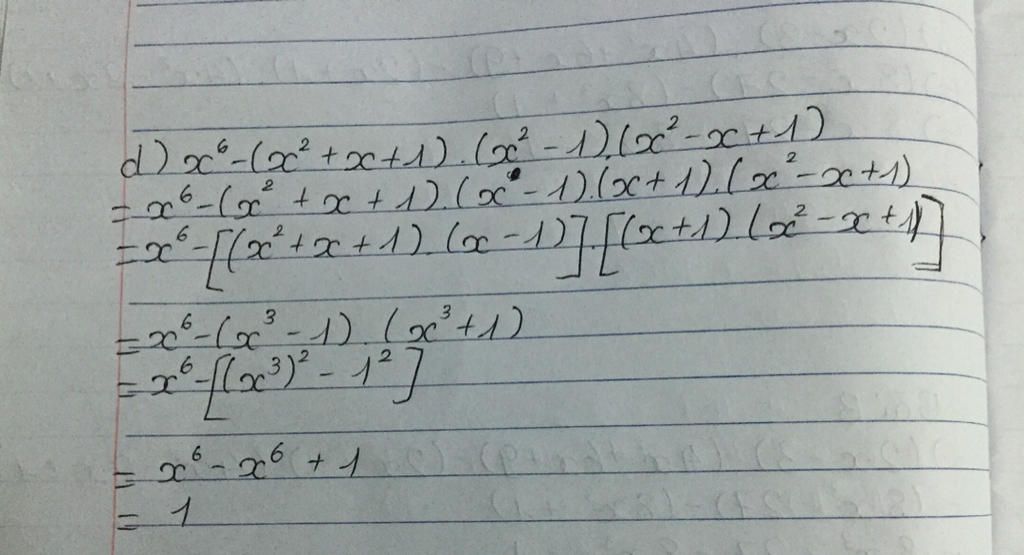 d) x⁶-(x²+x+1).(x²-1).(x²-x+1)
= x⁶-(x²+x+1).(x-1).(x+1).(x²-x+1)
= x⁶-[(x²+x+1).(x-1)].[(x+1).(x²-x+1)]
= x⁶-(x³-1).(x³+1)
= x⁶-[(x³)²-1²]
= x⁶-x⁶+1
= 1